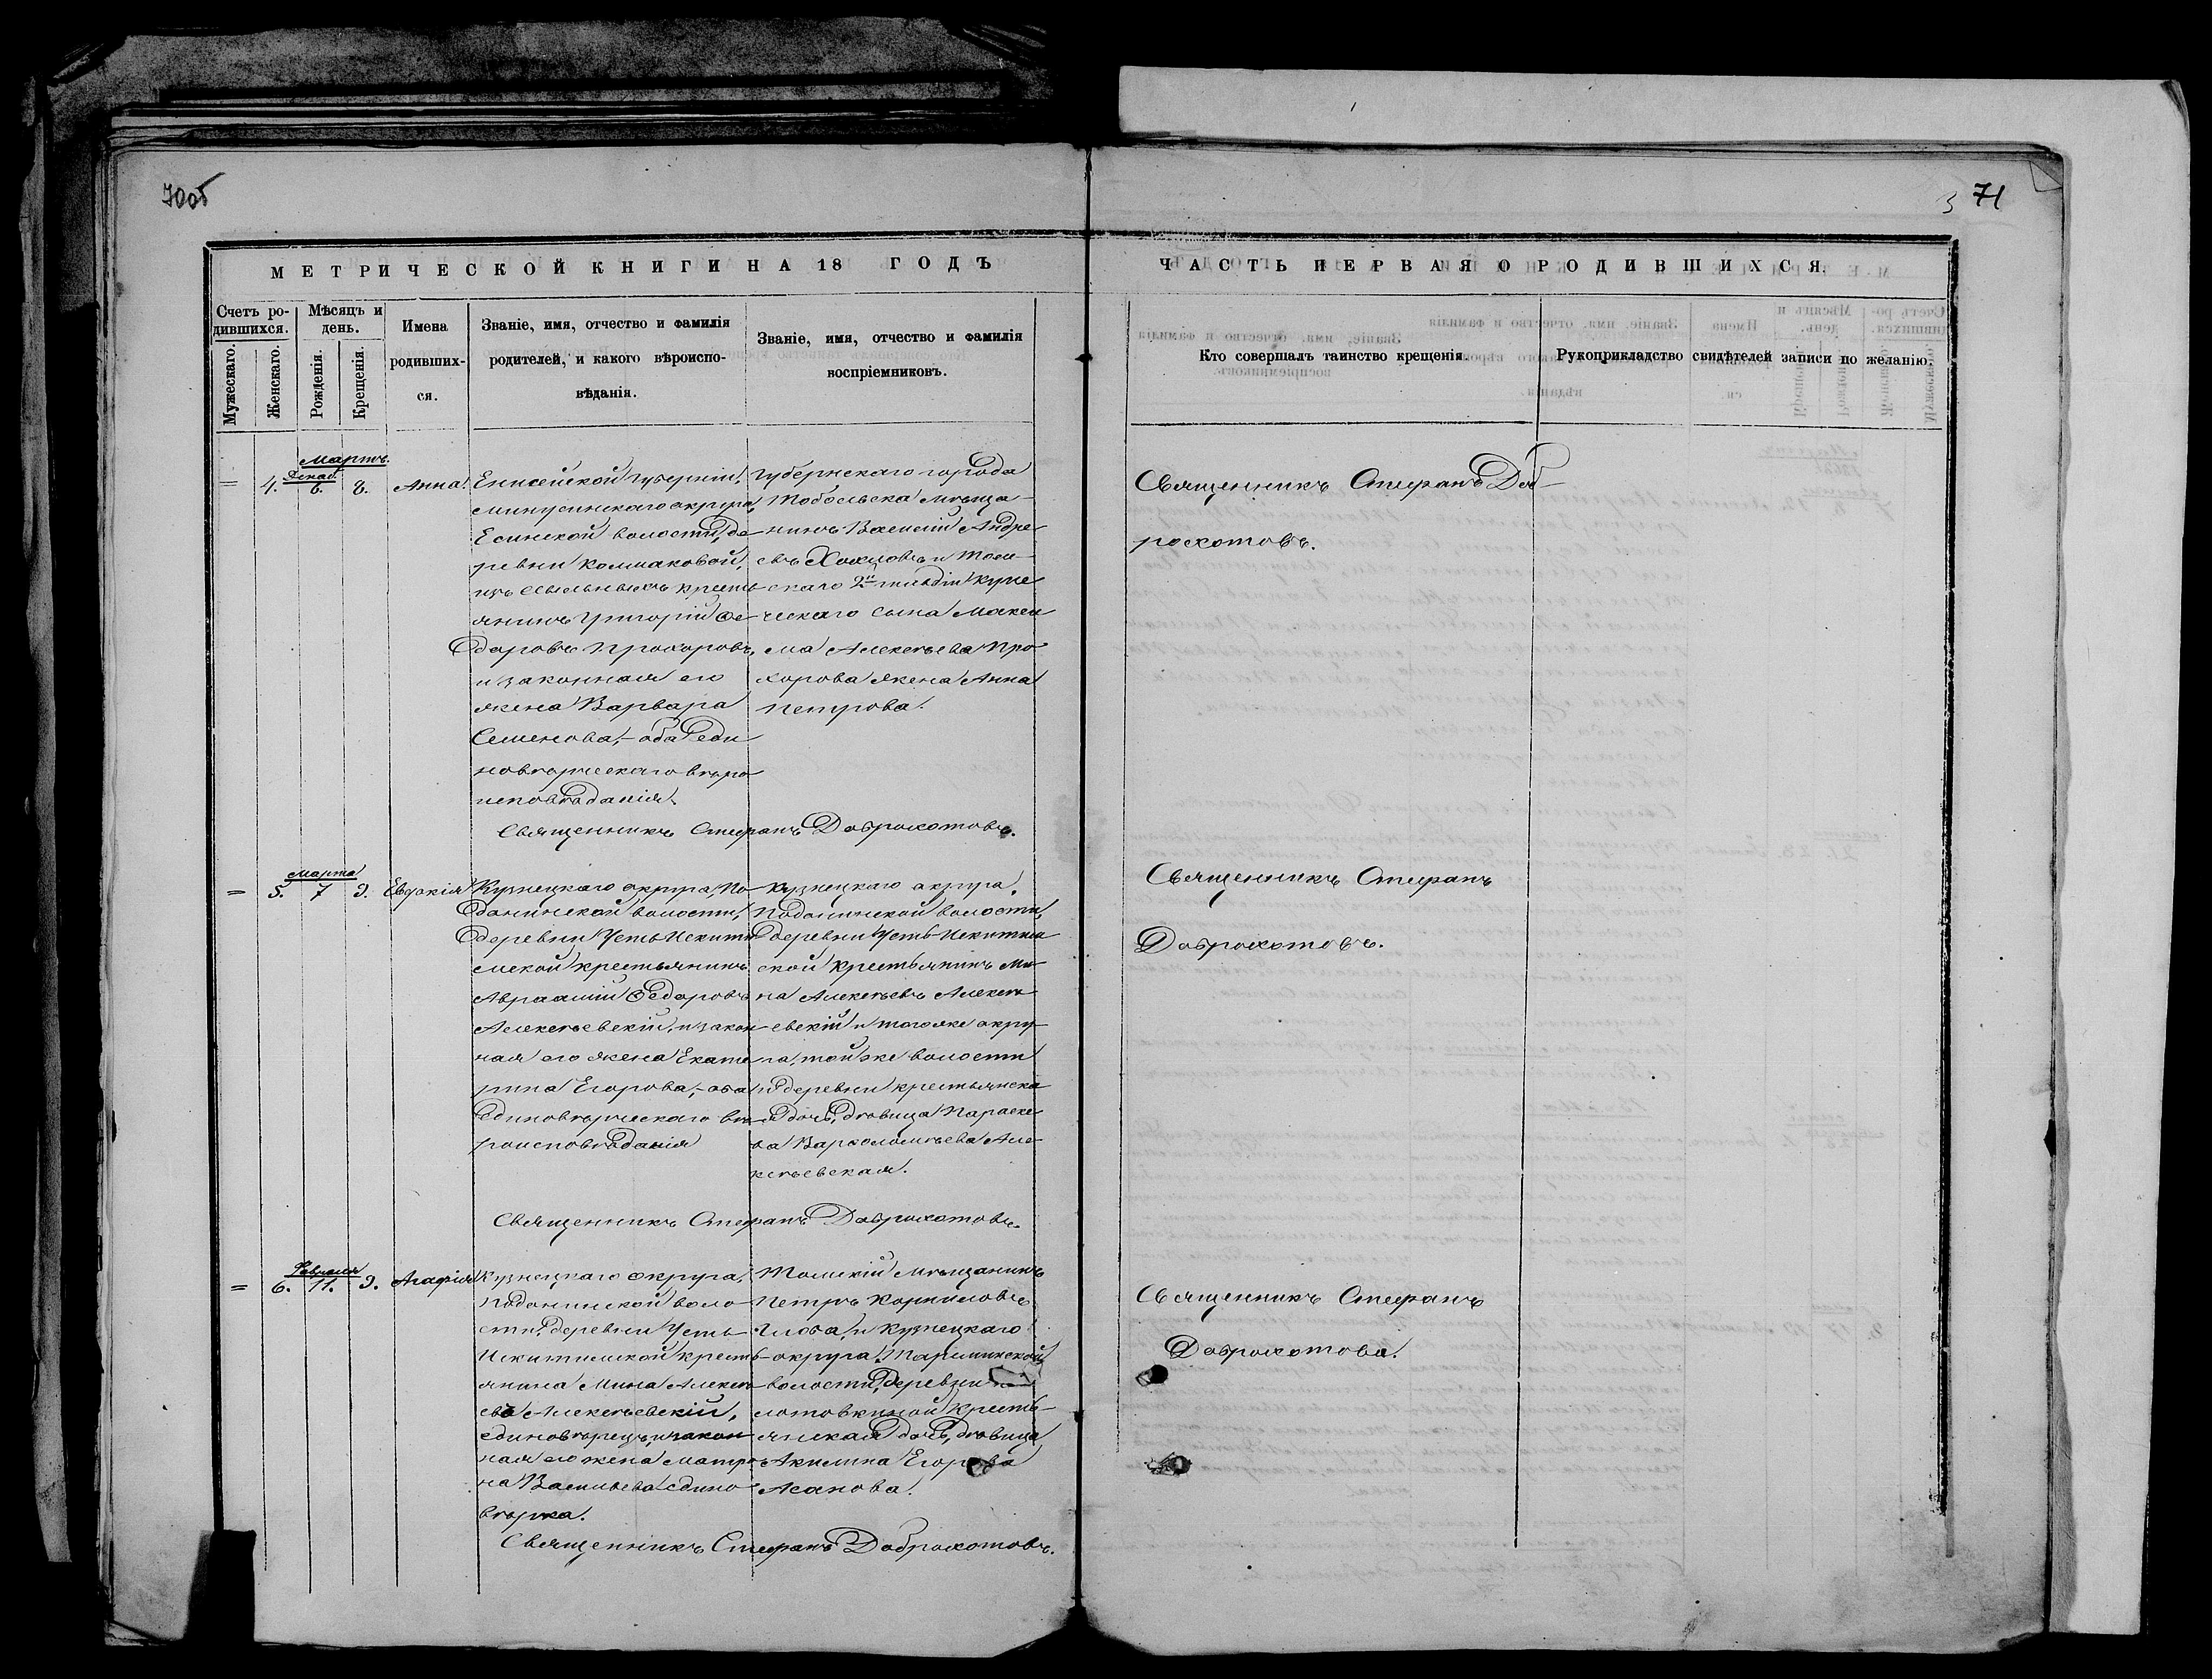 70об
3 71
МЕТРИЧЕСКОЙ КНИГИ НА 18 ГОДЪ
ЧАСТЬ ПЕРВАЯ О РОДИВШИХСЯ.
Счетъ родившихся.
Мужескаго.
Женскаго.
Мѣсяцъ и день.
Рожденія.
Крещенія.
Имена родившихся.
Званіе, имя, отчество и фамилія
родителей, и какого вѣроиспо-
вѣданія.
Званіе, имя, отчество и фамилія
воспріемниковъ.
Кто совершалъ таинство крещенія.
Рукоприкладство свидѣтелей записи по желанію.
Мартъ.
Декаб.
= 4. 6. 8. Анна.
Енисейской губерніи,
минусинскаго округа,
Есинской волости, де-
ревни Колмаковой,
изъ ссыльныхъ кресть
янинъ Григорій Ѳе-
доровъ Прохоровъ,
и законная его
жена Варвара
Семенова, – оба еди
новѣрческаго вѣро
исповѣданія.
Губернскаго города
Тобольска мѣща-
нинъ Василій Андре
евъ Хохловъ и Том-
скаго 2й гильдіи купе
ческаго сына Макси
ма Алексѣева Про
хорова жена Анна
Петрова.
Священникъ Стефанъ Доброхотовъ.
Священникъ Стефанъ Доб-
рохотовъ.
Марта
= 5. 7 9. Евдокія
Кузнецкаго округа, По-
донинской волости,
деревни Усть Искити
мской крестьянинъ
Авраамій Ѳедоровъ
Алексѣевскій, и закон
ная его жена Екате
рина Егорова, – оба
единовѣрческаго вѣ
роисповѣданія
Кузнецкаго округа,
Подонинской волости,
деревни Усть-Искитим
ской крестьянинъ Ми
на Алексѣевъ Алексѣ
евскій и тогоже окру-
га, той же волости
и деревни крестьянска
я дочь, дѣвица Параске
ва Варѳоломѣева Але-
ксѣевская.
Священникъ Стефанъ Доброхотовъ.
Священникъ Стефанъ
Доброхотовъ.
Февраля
= 6. 11. 9. Агафія
Кузнецкаго округа,
Подонинской воло
сти, деревни Усть-
Искитимской кресть
янина Мина Алексѣ
евъ Алексѣевскій,
единовѣрецъ, и закон
ная его жена Матро
на Васильева едино
вѣрка.
Томскій мѣщанинъ
Петръ Корниловъ
и Кузнецкаго
округа, Тарсминской
волости, деревни
крестъ-
янская дочь, дѣвица
Акилина Егорова
Асанова.
Священникъ Стефанъ Доброхотовъ.
Священникъ Стефанъ
Доброхотовъ.